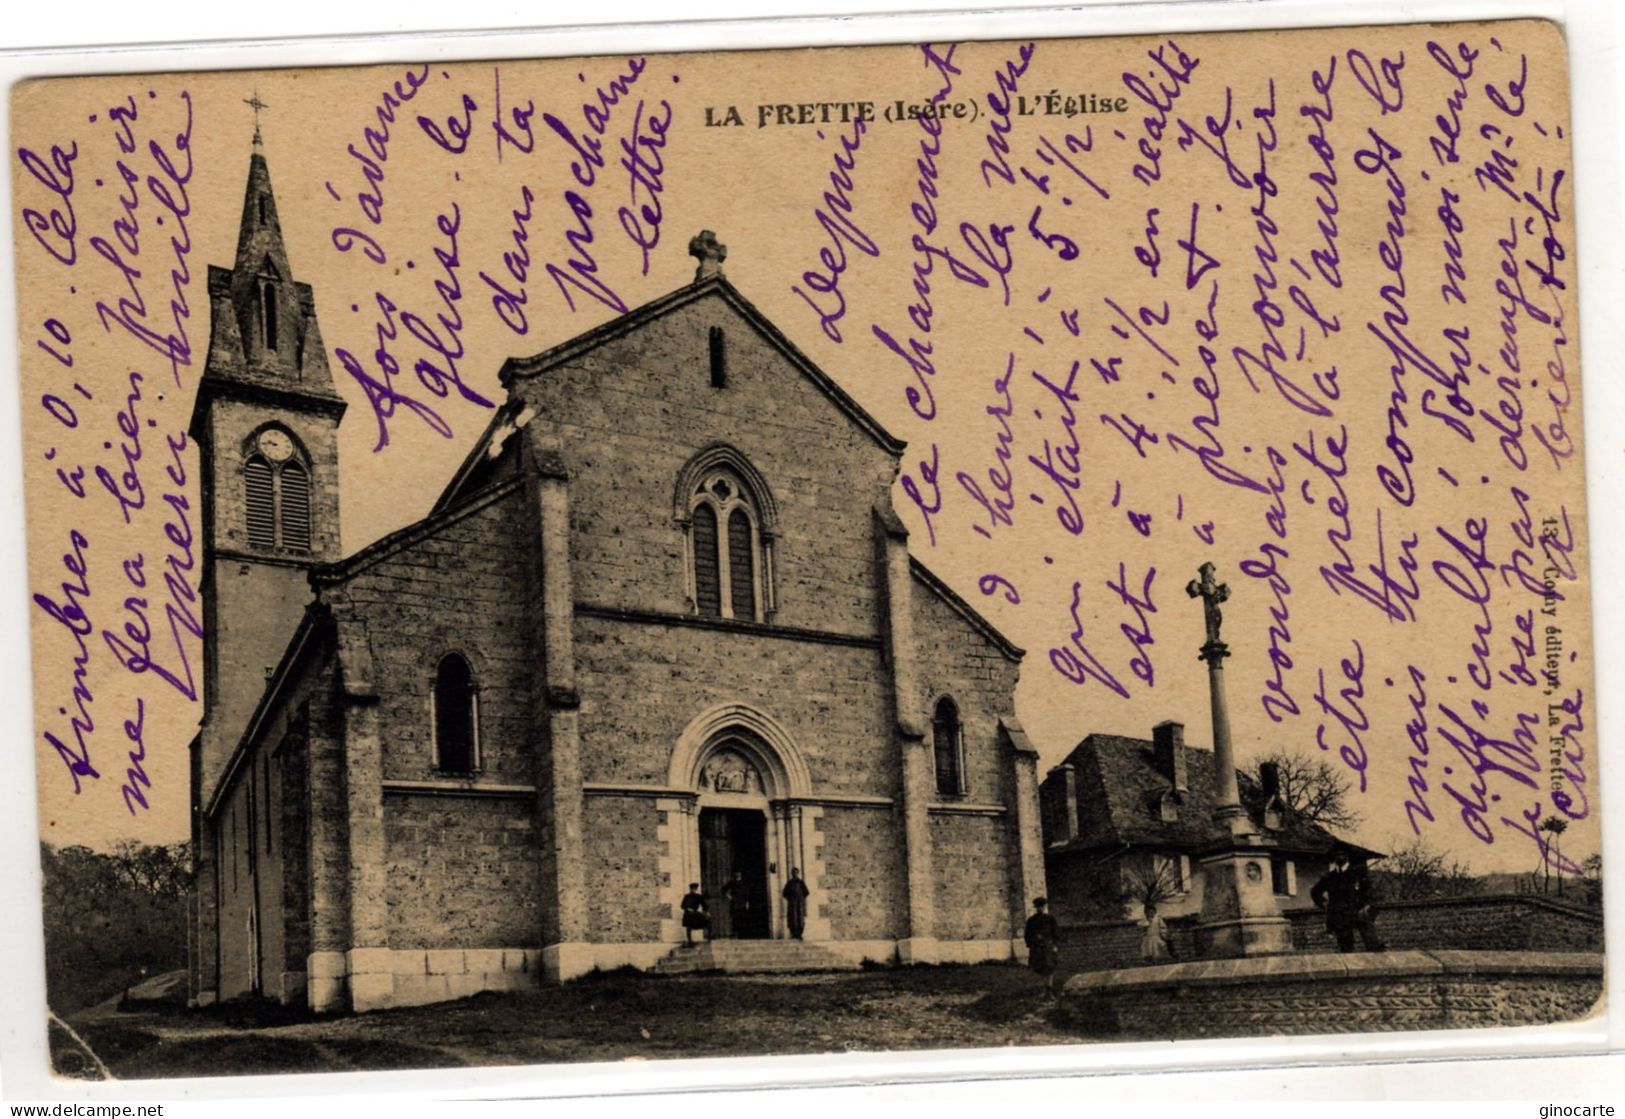 LA FRETTE (Isère). - L'Église
timbres à 0,10. Cela
me fera bien plaisir.
Merci mille
fois d'avance.
glisse-les
dans ta
prochaine
lettre.
depuis
le changement
d'heure la messe
qui était à 5h 1/2
est à 4h 1/2 en réalité
à présent & je
voudrais pouvoir
être prête à l'aurore
tu comprends la
mais difficulté! Pour moi seule
je n'ose pas déranger Mr le
curé
à bientôt!
13 Cony éditeur, La Frette
ginocarte